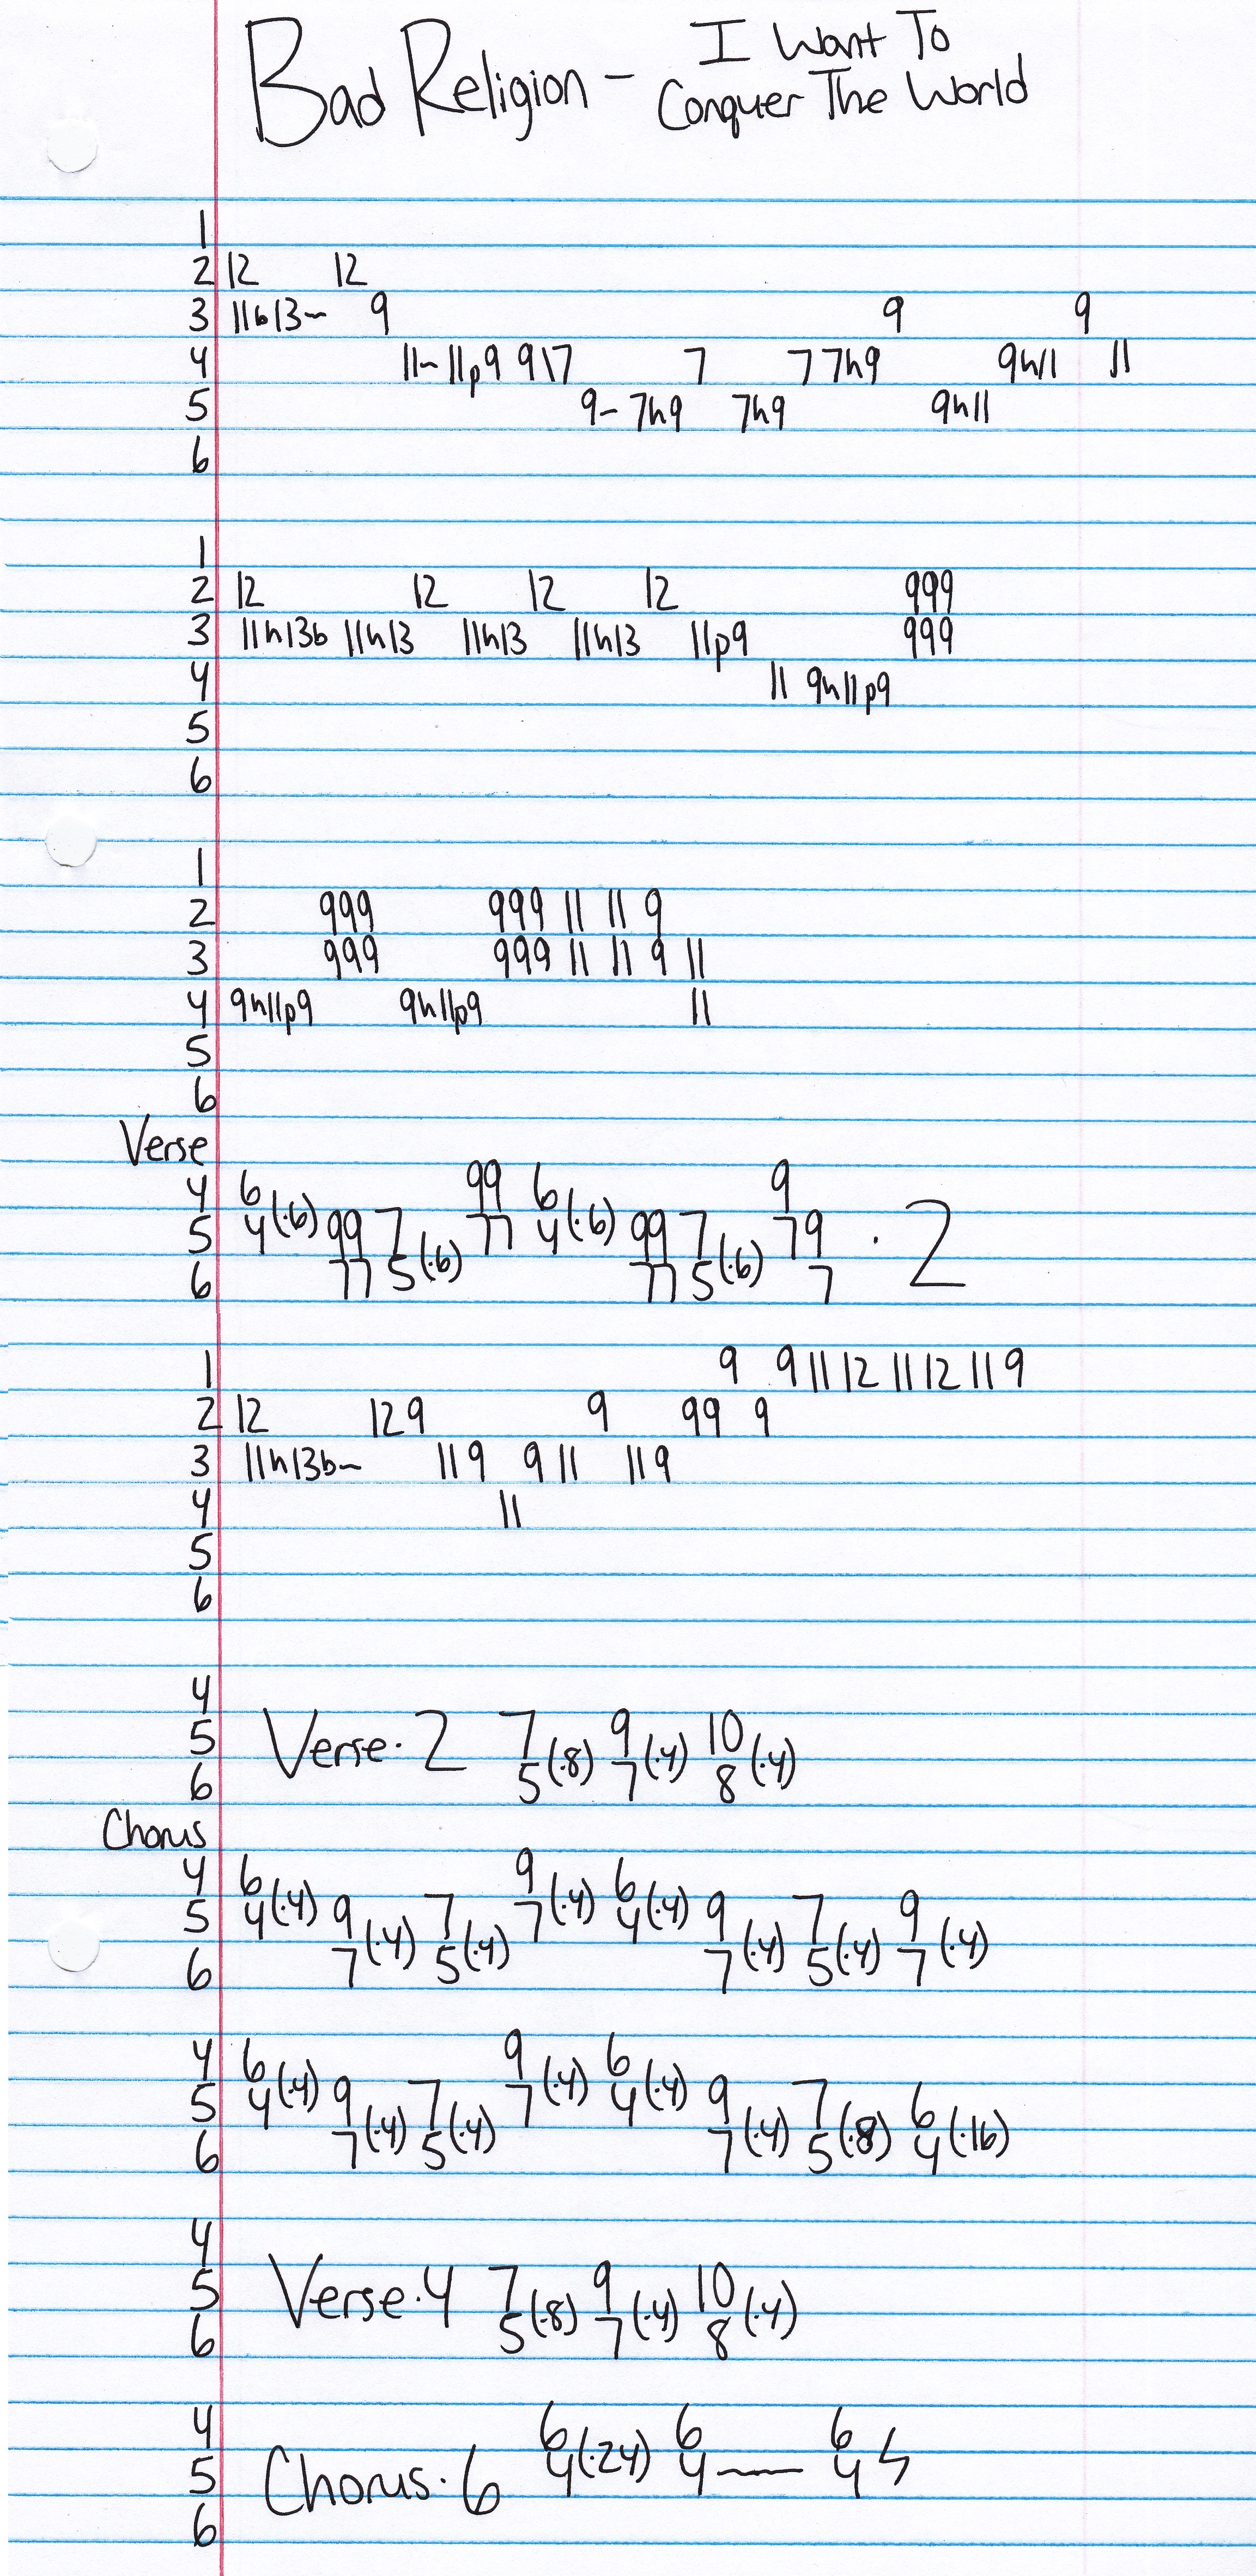 Bad Religion - I Want To
Conquer The World
1
2 12 12
3 11b13~ 9 9 9
4 11~ 11p9 9\7 7 7 7h9 9h11 11
5 9- 7h9 7h9 9h11
6
1
2 12 12 12 12 999
3 11h13b 11h13 11h13 11h13 11p9 999
4 11 9h11p9
5
6
1
2 999 999 11 11 9
3 999 999 11 11 9 11
4 9h11p9 9h11p9 11
5
6
Verse
4 6 99 6 9
5 4(·6) 99 7 77 4(·6) 99 7 79 · 2
6 77 5(·6) 77 5(·6) 7
1 9 9 11 12 11 12 11 9
2 12 12 9 9 99 9
3 11h13b~ 11 9 9 11 11 9
4 11
5
6
4
5 Verse·2 7 9 10
6 5(·8) 7(·4) 8(·4)
Chorus
4 6 9 6
5 4(·4) 9 7 7(·4) 4(·4) 9 7 9
6 7(·4) 5(·4) 7(·4) 5(·4) 7(·4)
4 6 9 6
5 4(·4) 9 7 7(·4) 4(·4) 9 7 6
6 7(·4) 5(·4) 7(·4) 5(·8) 4(·16)
4
5 Verse·4 7 9 10
6 5(·8) 7(·4) 8(·4)
4 6 6 6
5 Chorus·6 4(·24) 4— 4 ϟ
6